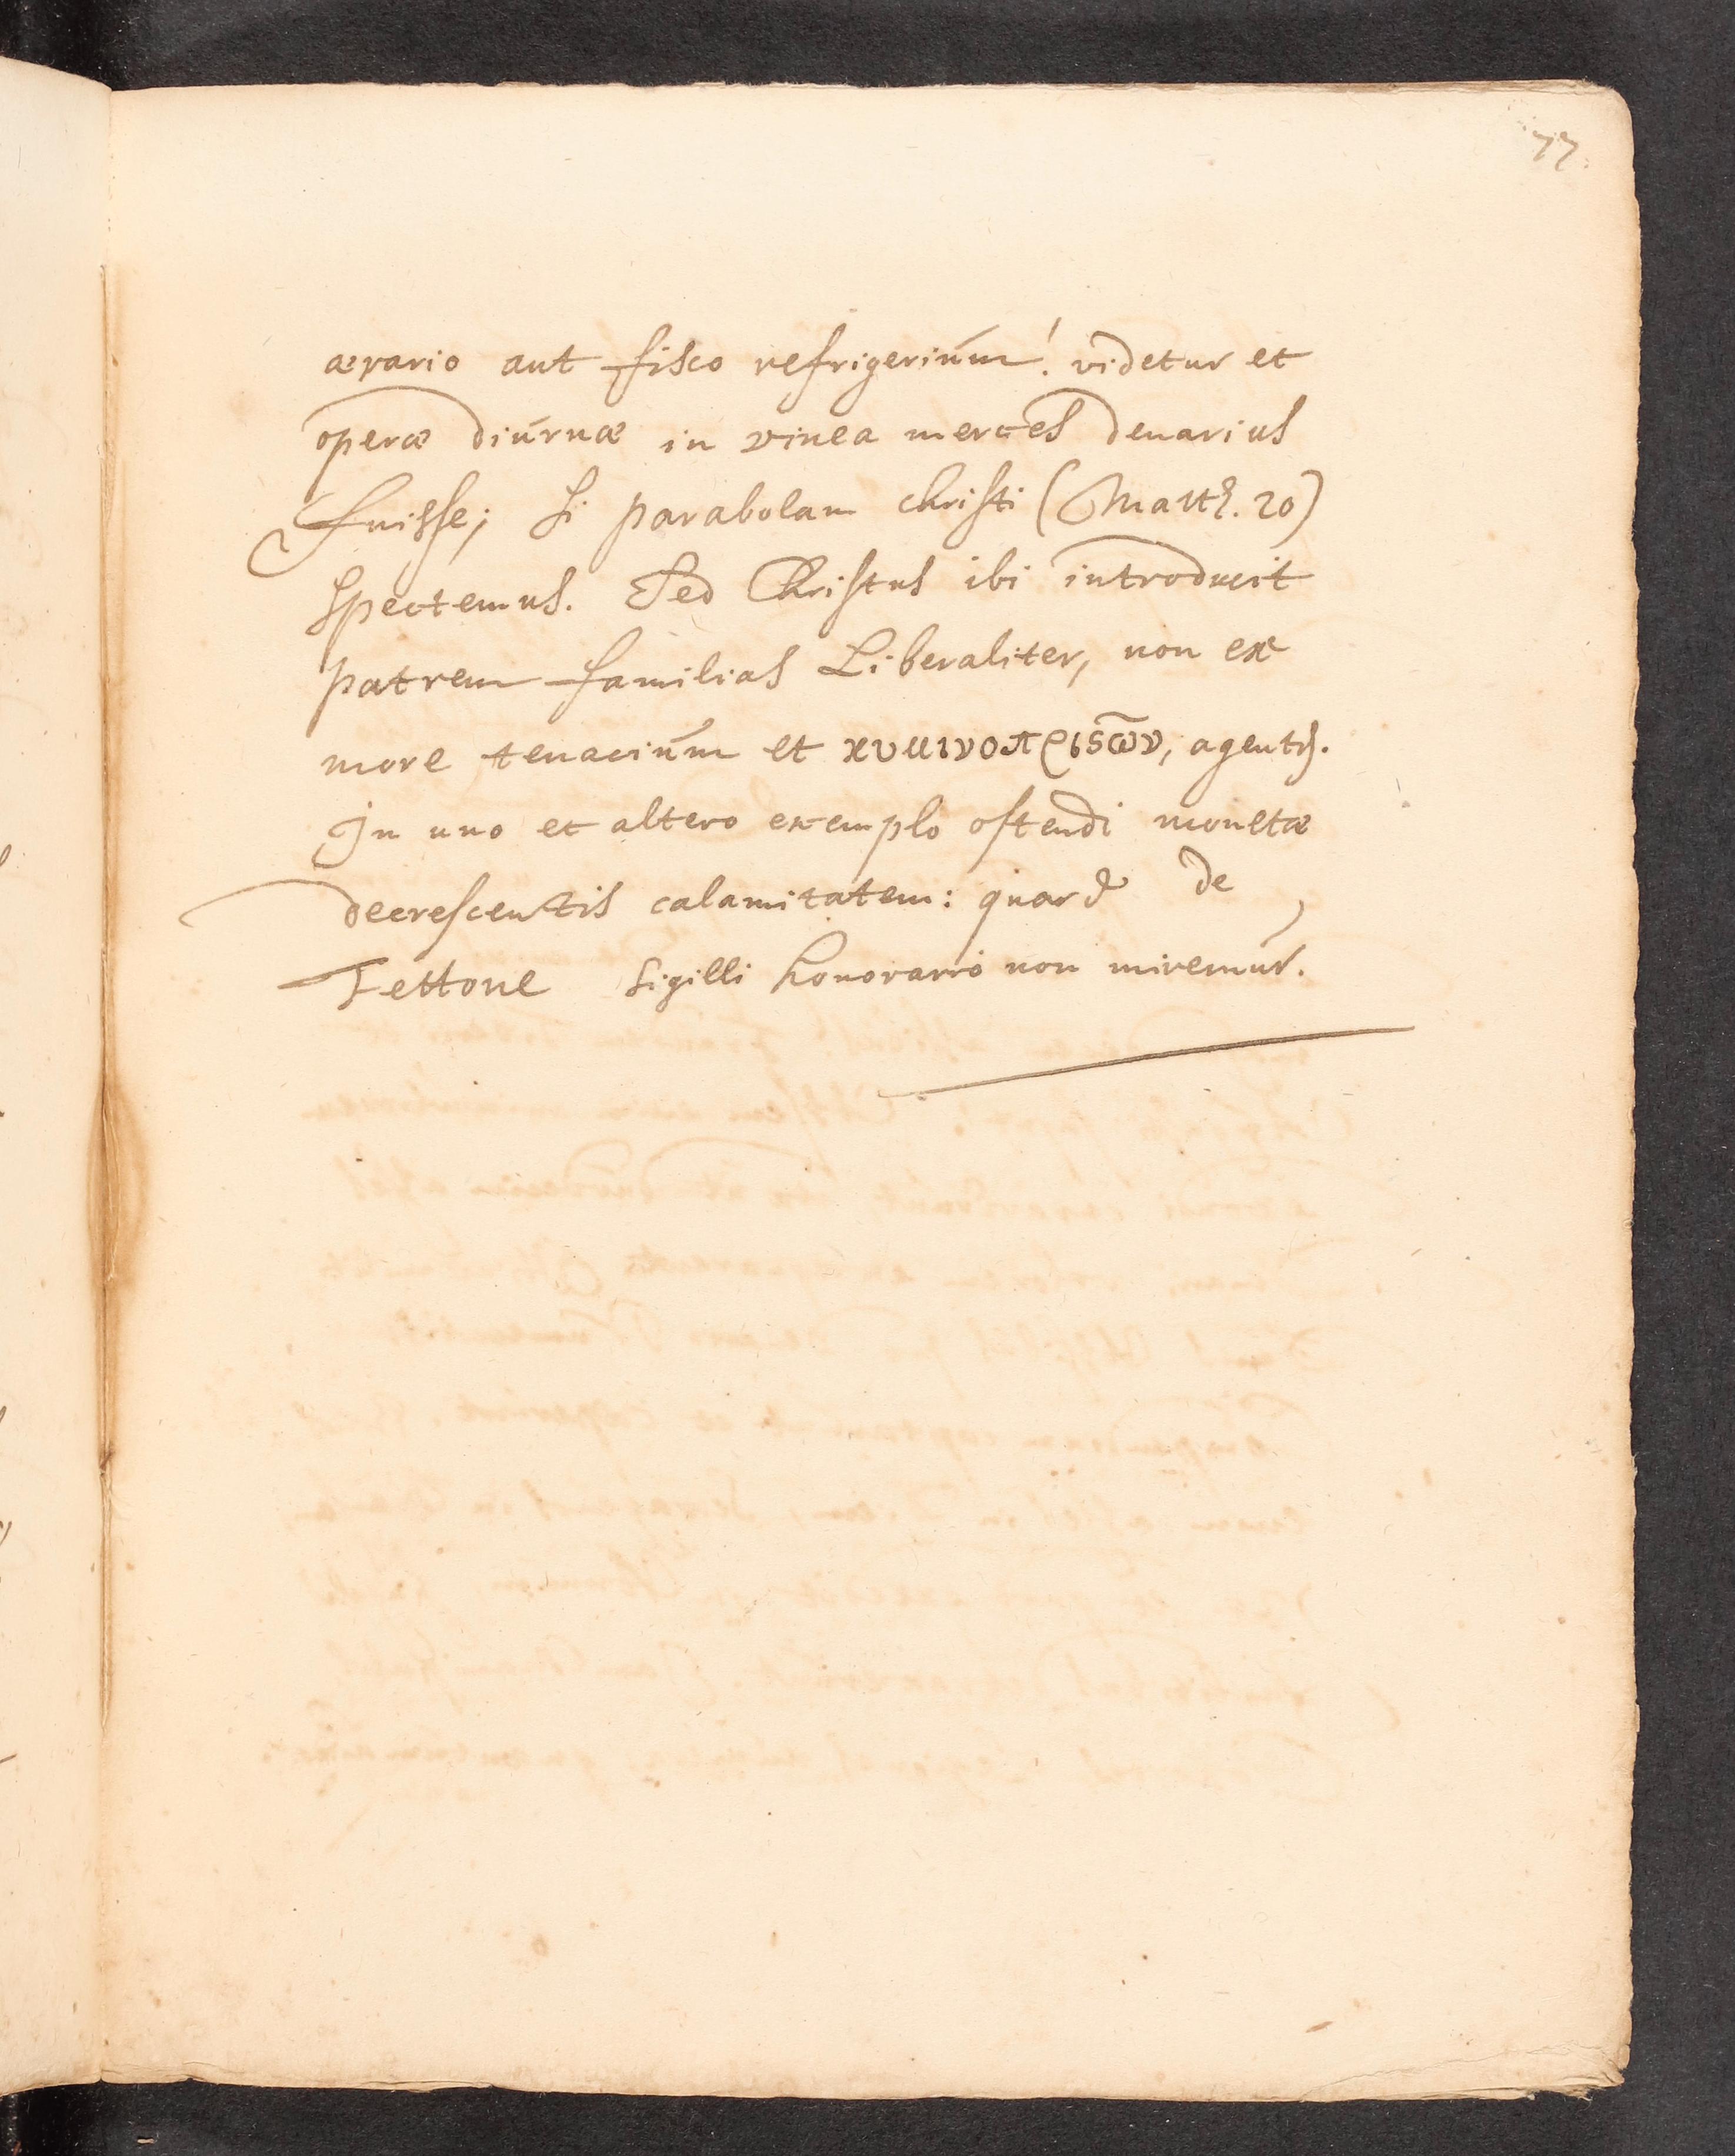 77.
ærario aut fisco refrigerium! videtur et
operæ diurnæ in vinea merces denarius
fuisse; si parabolam christi (Matth. 20)
spectemus. Sed Christus ibi introducit
patrem familias Liberaliter, non ex
more tenacium et κυμινοπριϛῶν, agentẽ.
In uno et altero exemplo ostendi monetæ
decrescentis calamitatem: quarè de
Tettone sigilli honorario non miremur.